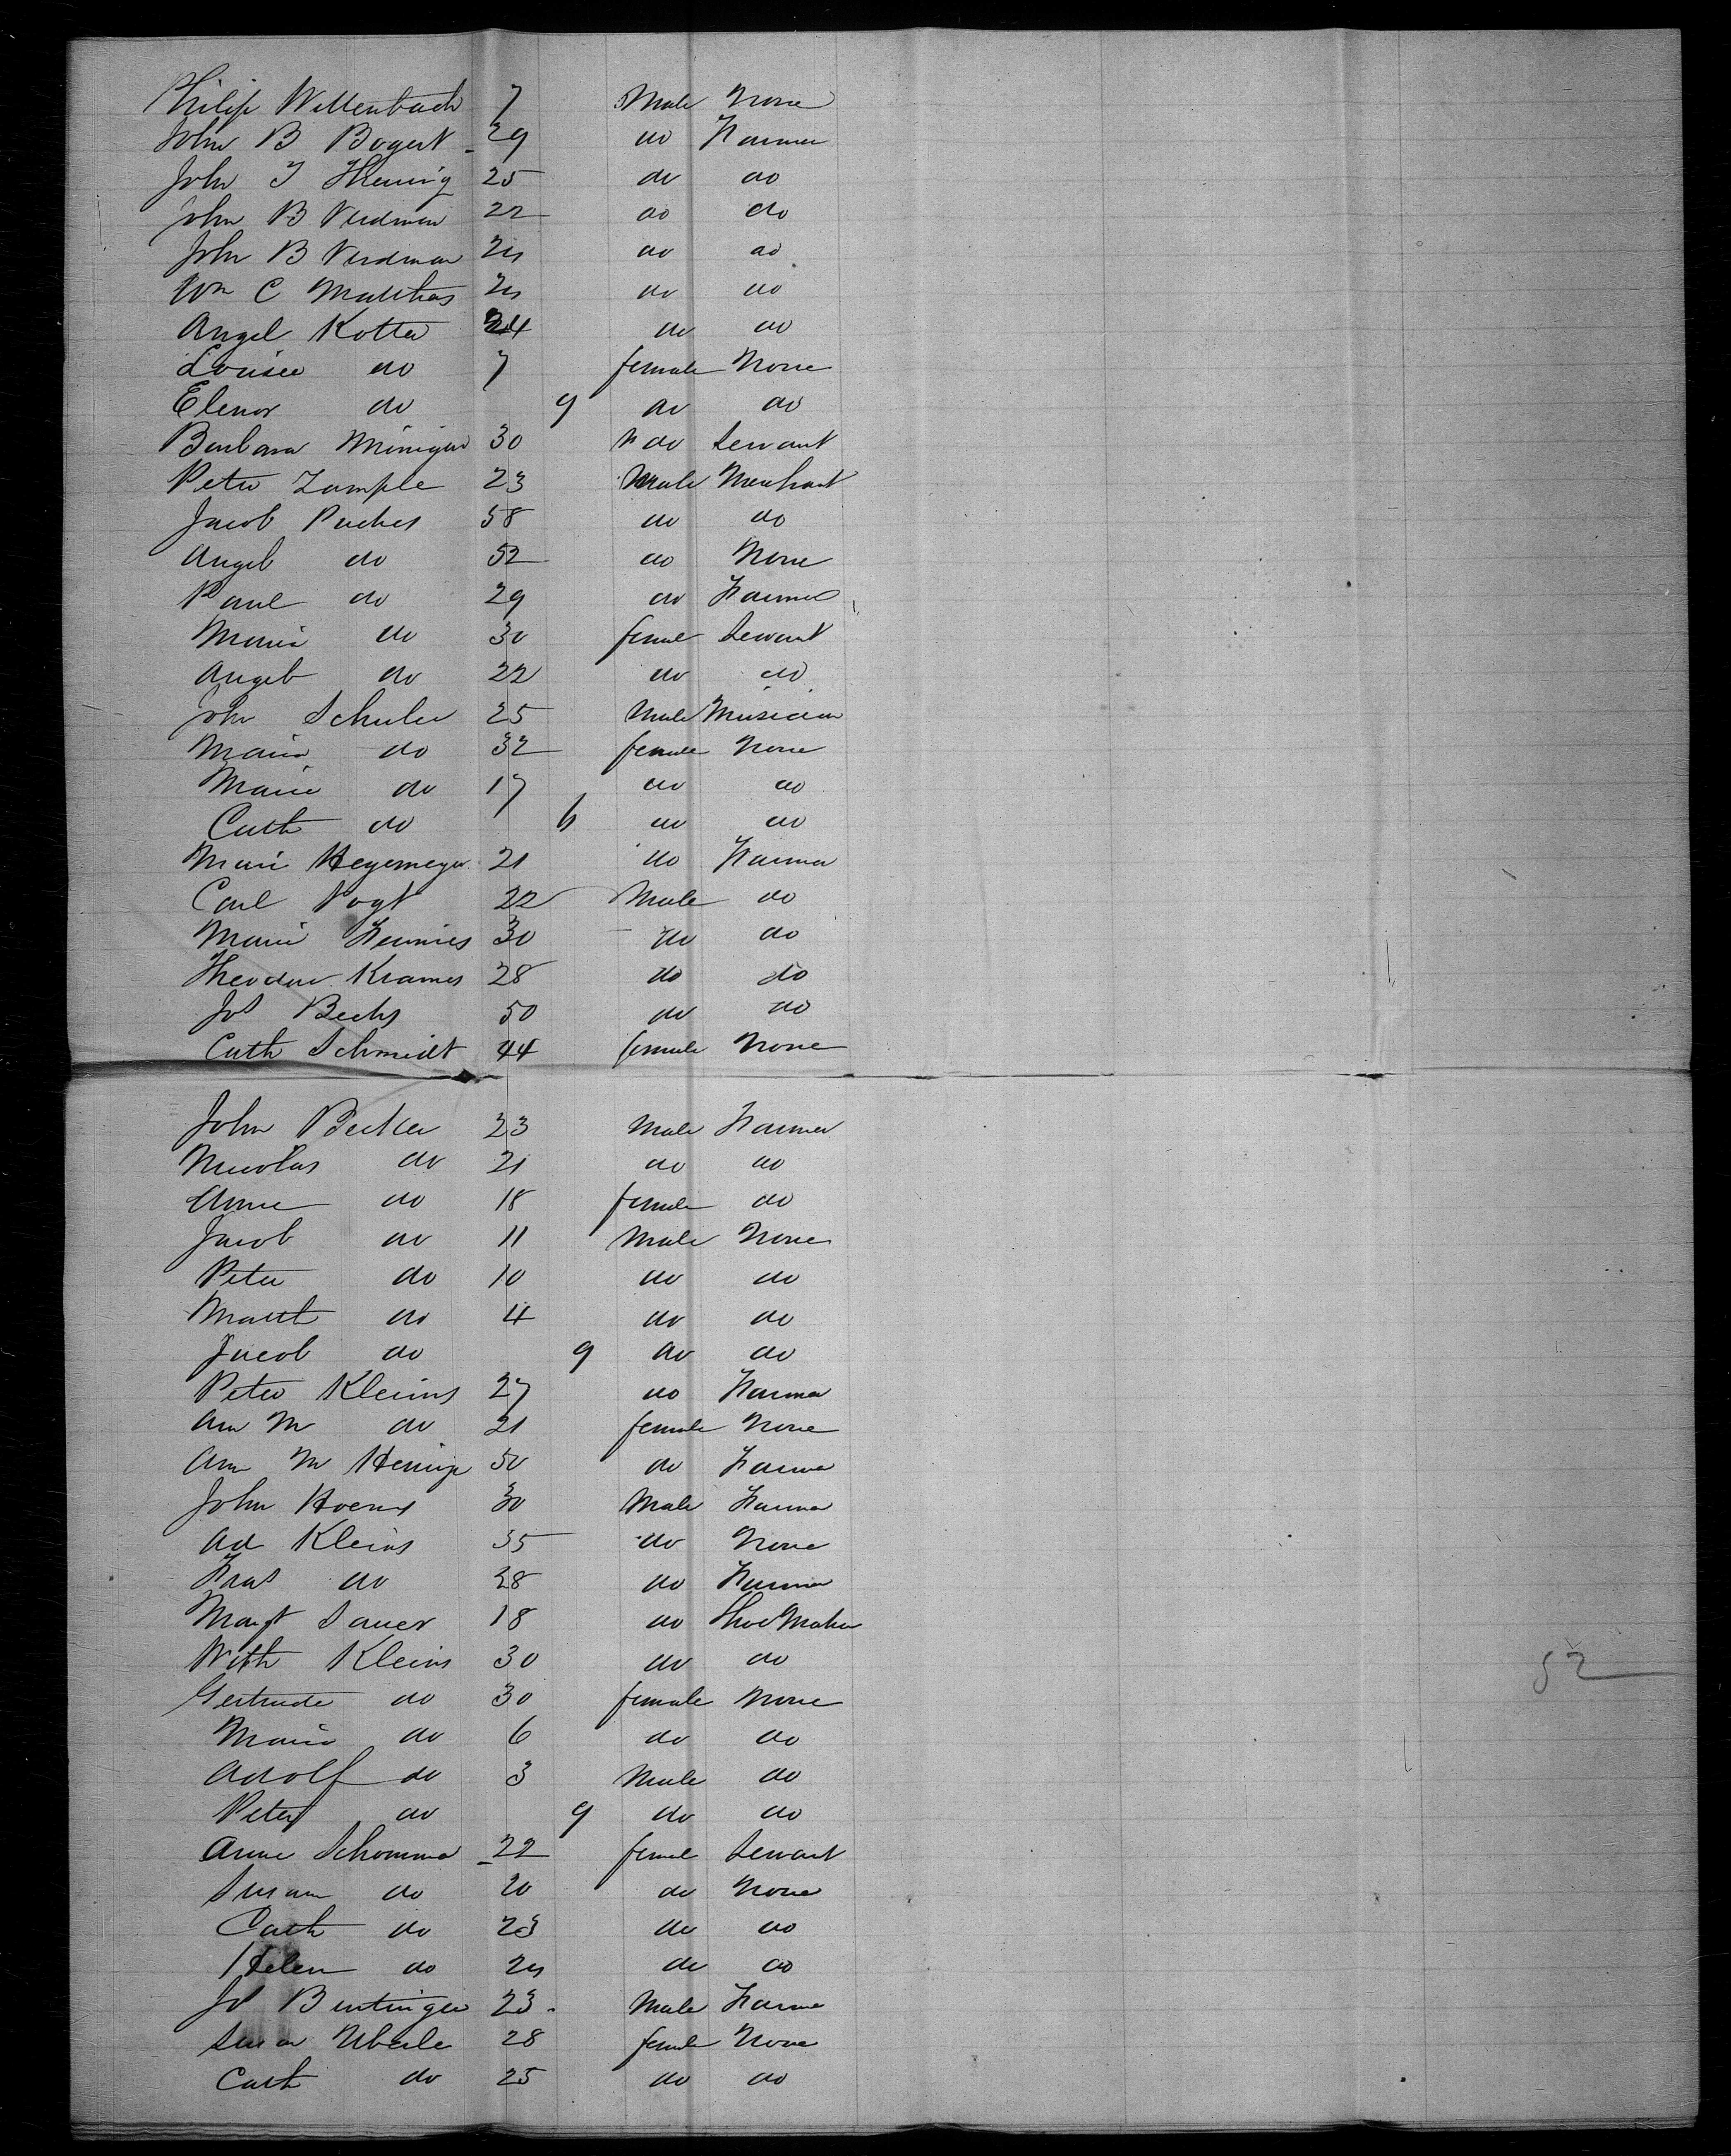 Philip Willenbach 7 Male None
John B Bogert 29 do Farmer
John J Hennig 25 do do
John B Verdman 22 do do
John B Verdman 24 do do
Wm C Matthas 24 do do
Angel Kotter 24 do do
Louise do 7 female None
Elenor do 9 do do
Barbara 30 do Servant
Peter Zample 23 Male Merchant
Jacob Puches 58 do do
Angel do 52 do None
Paul do 29 do Farmer
Maria do 30 female Servant
Angel do 22 do do
John Schuler 25 Male Musician
Maria do 32 female None
Marie do 17 do do
Cath do 6 do do
Marie Hegemeyer 21 do Farmer
Carl Vogt 22 Male do
Marie 30 do do
Theodor Kramer 28 do do
Jos Bechs 50 do do
Cath Schmidt 44 female None
John Becker 23 Male Farmer
Nicolas do 21 do do
Anne do 18 female do
Jacob do 11 Male None
Peter do 10 do do
Matt do 4 do do
Jacob do 9 do do
Peter Kleins 27 do Farmer
Ann M do 21 female None
Ann M 50 do Farmer
John Hoeny 30 Male Farmer
Ad Kleins 35 do None
Fras do 28 do Farmer
Margt Sauer 18 do Shoe Maker
With Kleins 30 do do
Gertrude do 30 female None
Maria do 6 do do
Adolf do 3 Male do
Peter do 9 do do
Anne Schommer 22 femal Servant
Susan do 20 do None
Cath do 23 do do
Helen do 24 do do
Js Bentinger 23 Male Farmer
Susan Uberle 28 female None
Cath do 25 do do
52